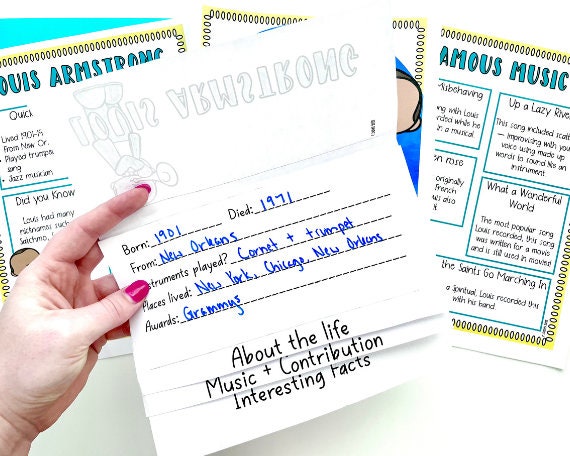 LOUIS ARMSTRONG
Quick
Lived 1901-19
From New Or
Played trumpe
song
Jazz musician
Did you Know
Louis had many
nicknames, such
Satchmo,
LOUIS ARMSTRONG
Born: 1901 Died: 1971
From: New Orleans
Instruments played? Cornet + trumpet
Places lived: New York, Chicago, New Orleans
Awards: Grammys
About the life
Music + Contribution
Interesting Facts
FAMOUS MUSIC
Misbehaving
ng with Louis
orded while he
in a musical
Up a Lazy River
This song included scatt
– improvising with your
voice using made up
words to sound like an
instrument
en rose
originally
French
uis also
What a Wonderful
World
The most popular song
Louis recorded, this song
was written for a movie
and is still used in movies!
the Saints Go Marching In
a Spiritual, Louis recorded this
with his band